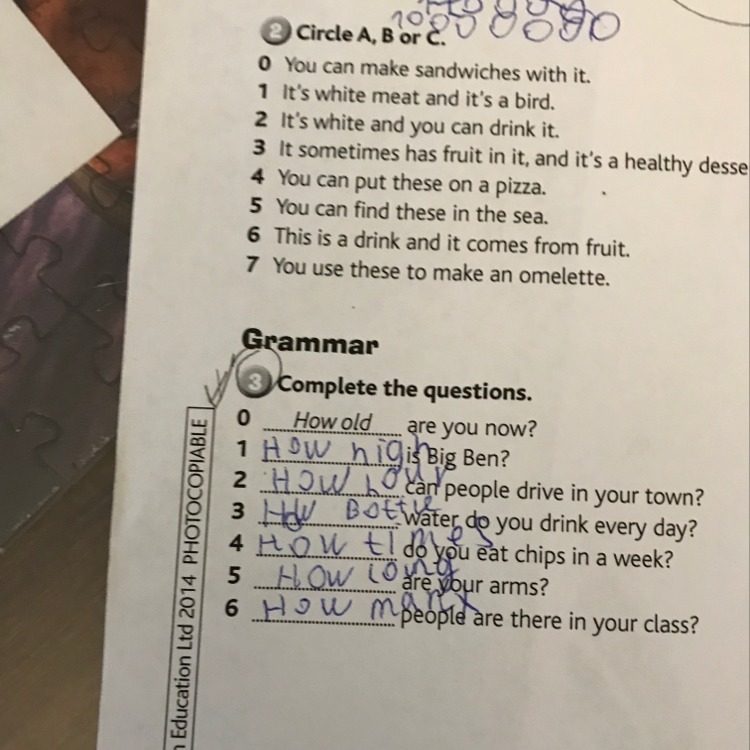 2 Circle A, B or C.
0 You can make sandwiches with it.
1 It's white meat and it's a bird.
2 It's white and you can drink it.
3 It sometimes has fruit in it, and it's a healthy desse
4 You can put these on a pizza.
5 You can find these in the sea.
6 This is a drink and it comes from fruit.
7 You use these to make an omelette.
Grammar
3 Complete the questions.
0 How old are you now?
1 How high is Big Ben?
2 How can people drive in your town?
3 Bottle water do you drink every day?
4 How times do you eat chips in a week?
5 How long are your arms?
6 How many people are there in your class?
n Education Ltd 2014 PHOTOCOPIABLE